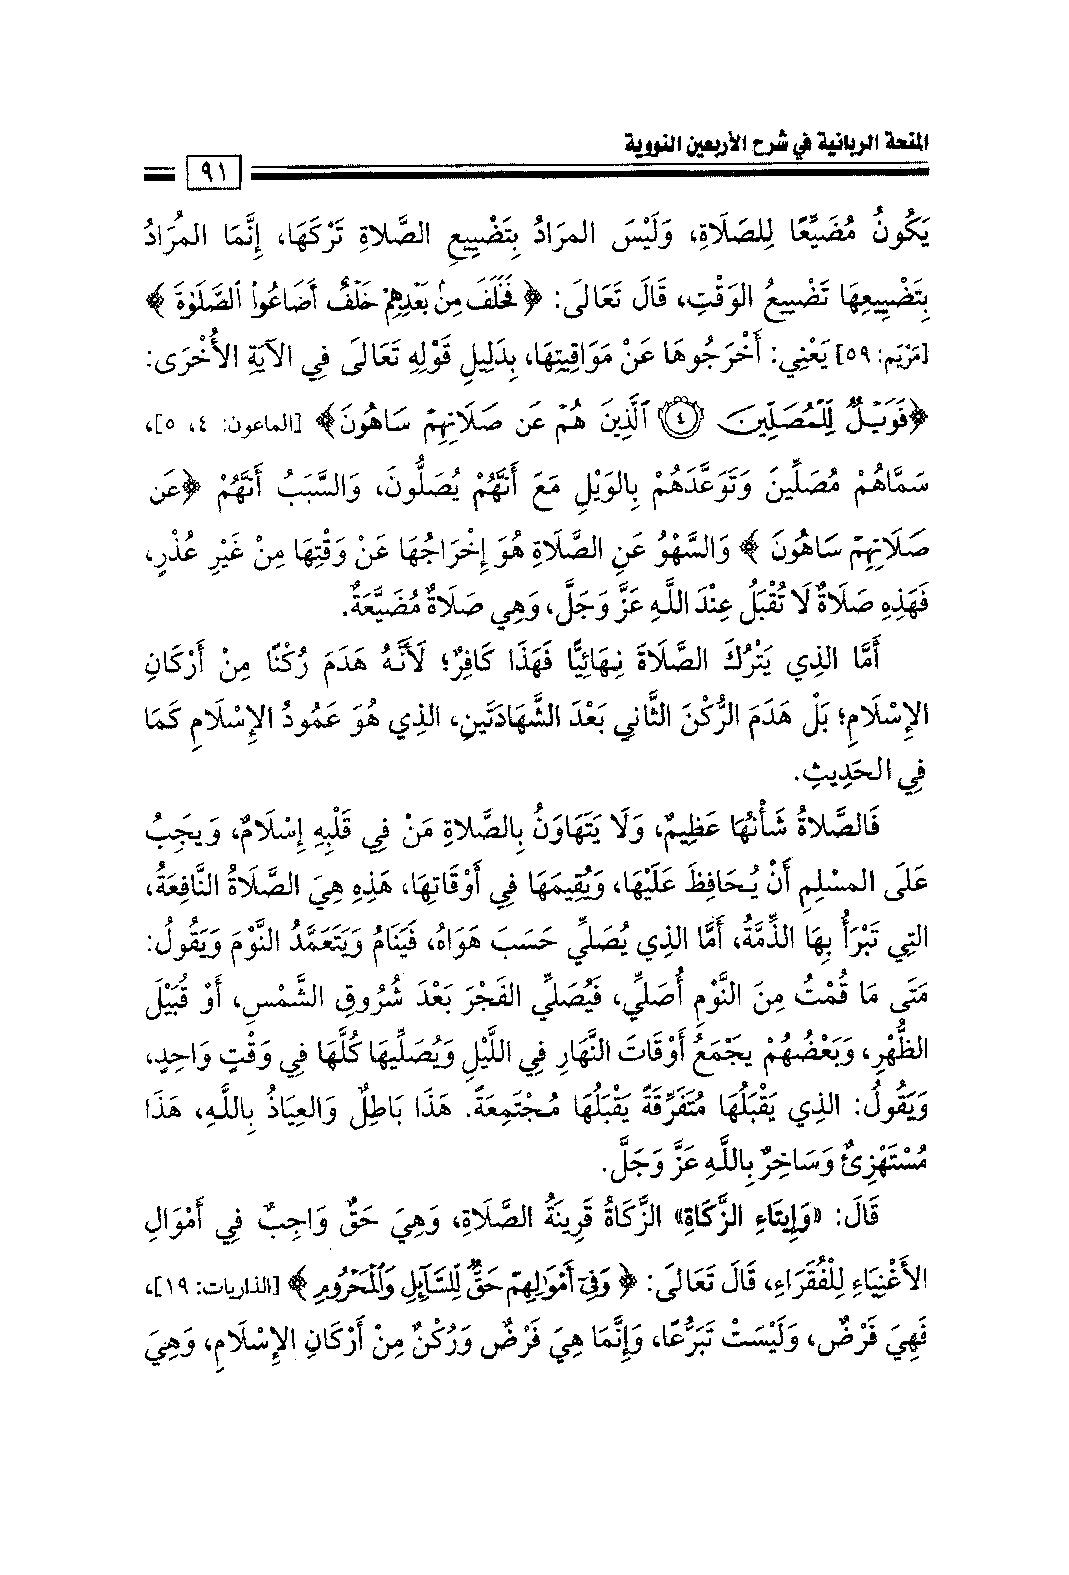 المنحة الربانية في شرح الأربعين النووية
٩١
يَكُونُ مُضَيِّعًا لِلصَلَاةِ، وَلَيْسَ المرَادُ بِتَضْيِيعِ الصَّلَاةِ تَرْكَهَا، إِنَّمَا المُرَادُ
بِتَضْيِيعِهَا تَضْيِيعُ الوَقْتِ، قَالَ تَعَالَى: ﴿ فَخَلَفَ مِنۢ بَعْدِهِمْ خَلْفٌ أَضَاعُوا۟ ٱلصَّلَوٰةَ ﴾
[مَرْيَم: ٥٩] يَعْنِي: أَخْرَجُوهَا عَنْ مَوَاقِيتِهَا، بِدَلِيلِ قَوْلِهِ تَعَالَى فِي الآيَةِ الأُخْرَى:
﴿فَوَيْلٌ لِّلْمُصَلِّينَ ۝٤ ٱلَّذِينَ هُمْ عَن صَلَاتِهِمْ سَاهُونَ﴾ [الماعون: ٤، ٥]،
سَمَّاهُمْ مُصَلِّينَ وَتَوَعَّدَهُمْ بِالوَيْلِ مَعَ أَنَّهُمْ يُصَلُّونَ، وَالسَّبَبُ أَنَّهُمْ ﴿عَن
صَلَاتِهِمْ سَاهُونَ ﴾ وَالسَّهْوُ عَنِ الصَّلَاةِ هُوَ إِخْرَاجُهَا عَنْ وَقْتِهَا مِنْ غَيْرِ عُذْرٍ،
فَهَذِهِ صَلَاةٌ لَا تُقْبَلُ عِنْدَ اللَّهِ عَزَّ وَجَلَّ، وَهِي صَلَاةٌ مُضَيَّعَةٌ.
أَمَّا الذِي يَتْرُكَ الصَّلَاةَ نِهَائِيًّا فَهَذَا كَافِرٌ؛ لَأَنَّهُ هَدَمَ رُكْنًا مِنْ أَرْكَانِ
الإِسْلَامِ؛ بَلْ هَدَمَ الرُّكْنَ الثَّانِي بَعْدَ الشَّهَادَتَينِ، الذِي هُوَ عَمُودُ الإِسْلَامِ كَمَا
فِي الحَدِيثِ.
فَالصَّلَاةُ شَأْنُهَا عَظِيمٌ، وَلَا يَتَهَاوَنُ بِالصَّلَاةِ مَنْ فِي قَلْبِهِ إِسْلَامٌ، وَيجَبُ
عَلَى المسْلِمِ أَنْ يُحَافِظَ عَلَيْهَا، وَيُقِيمَهَا فِي أَوْقَاتِهَا، هَذِهِ هِيَ الصَّلَاةُ النَّافِعَةُ،
التِي تَبْرَأُ بِهَا الذِّمَّةُ، أَمَّا الذِي يُصَلِّي حَسَبَ هَوَاهُ، فَيَنَامُ وَيَتَعَمَّدُ النَّوْمَ وَيَقُولُ:
مَتَى مَا قُمْتُ مِنَ النَّوْمِ أُصَلِّي، فَيُصَلِّي الفَجْرَ بَعْدَ شُرُوقِ الشَّمْسِ، أَوْ قُبَيْلَ
الظُّهْرِ، وَبَعْضُهُمْ يجْمَعُ أَوْقَاتَ النَّهَارِ فِي اللَّيْلِ وَيُصَلِّيهَا كُلَّهَا فِي وَقْتٍ وَاحِدٍ،
وَيَقُولُ: الذِي يَقْبَلُهَا مُتَفَرِّقَةً يَقْبَلُهَا مُجْتَمِعَةً. هَذَا بَاطِلٌ وَالعِيَاذُ بِاللَّهِ، هَذَا
مُسْتَهْزِئٌ وَسَاخِرٌ بِاللَّهِ عَزَّ وَجَلَّ.
قَالَ: «وَإِيتَاءِ الزَّكَاةِ» الزَّكَاةُ قَرِينَةُ الصَّلَاةِ، وَهِيَ حَقٌّ وَاجِبٌ فِي أَمْوَالِ
الأَغْنِيَاءِ لِلْفُقَرَاءِ، قَالَ تَعَالَى: ﴿ وَفِىٓ أَمْوَٰلِهِمْ حَقٌّ لِّلسَّآئِلِ وَٱلْمَحْرُومِ ﴾ [الذاريات: ١٩]،
فَهِيَ فَرْضٌ، وَلَيْسَتْ تَبَرُّعًا، وَإِنَّمَا هِيَ فَرْضٌ وَرُكْنٌ مِنْ أَرْكَانِ الإِسْلَامِ، وَهِيَ